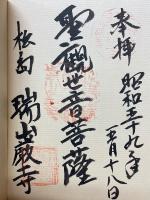 奉拝
昭和五十九年
五月十八日
聖觀世音菩薩
松島
瑞巌寺